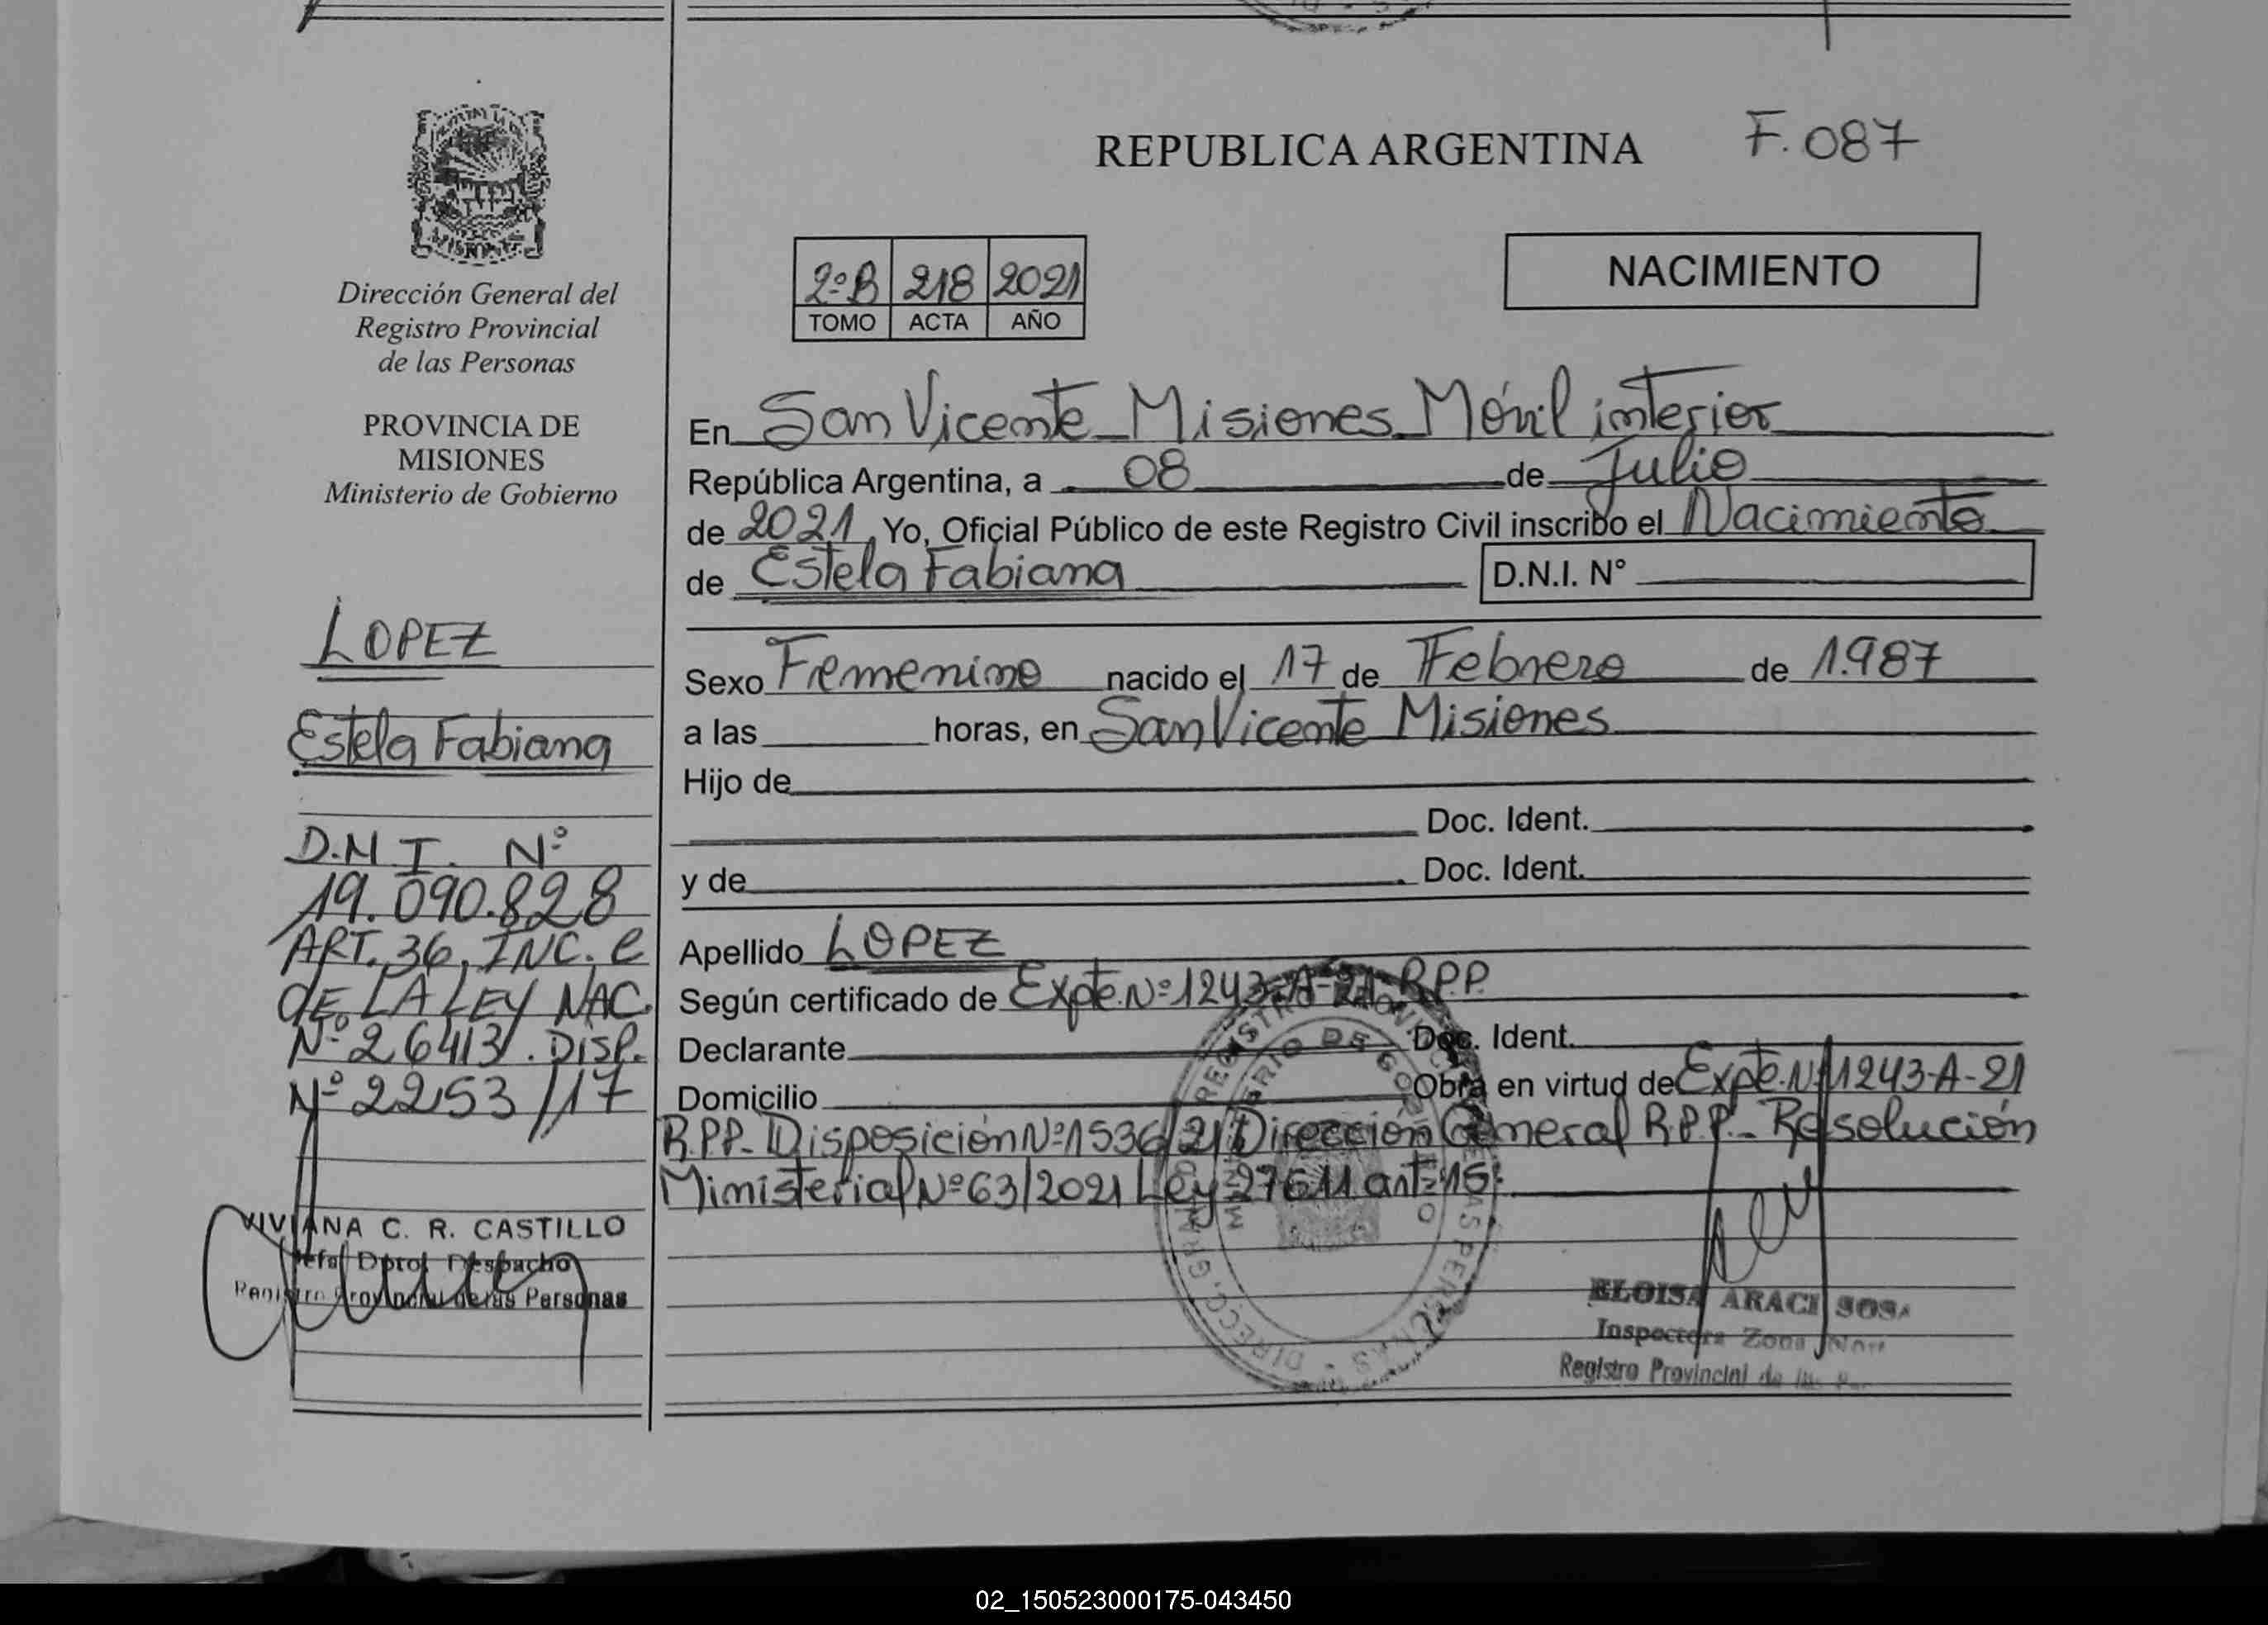 REPUBLICA ARGENTINA F.087
Dirección General del
Registro Provincial
de las Personas
PROVINCIA DE
MISIONES
Ministerio de Gobierno
LOPEZ
Estela Fabiana
D.N.I. Nº
19.090.828
ART. 36, INC. C
de LA LEY NAC.
Nº 26413. DISP.
Nº 2253/17
VIVIANA C. R. CASTILLO
Jefa Dpto. Despacho
Registro Provincial de las Personas
2ºB 218 2021
TOMO ACTA AÑO
NACIMIENTO
En San Vicente Misiones Móvil interior
República Argentina, a 08 de Julio
de 2021, Yo, Oficial Público de este Registro Civil inscribo el Nacimiento
de Estela Fabiana D.N.I. N°
Sexo Femenino nacido el 17 de Febrero de 1.987
a las horas, en San Vicente Misiones
Hijo de
Doc. Ident.
y de Doc. Ident.
Apellido LOPEZ
Según certificado de Expte.Nº1243-A-21-R.P.P.
Declarante Doc. Ident.
Domicilio Obra en virtud de Expte.Nº1243-A-21
R.P.P- Disposición Nº1536/21 Dirección General R.P.P.- Resolución
Ministerial Nº63/2021 Ley 27611 art:15.
ELOISA ARACI SOSA
Inspectora Zona
Registro Provincial de
02_150523000175-043450